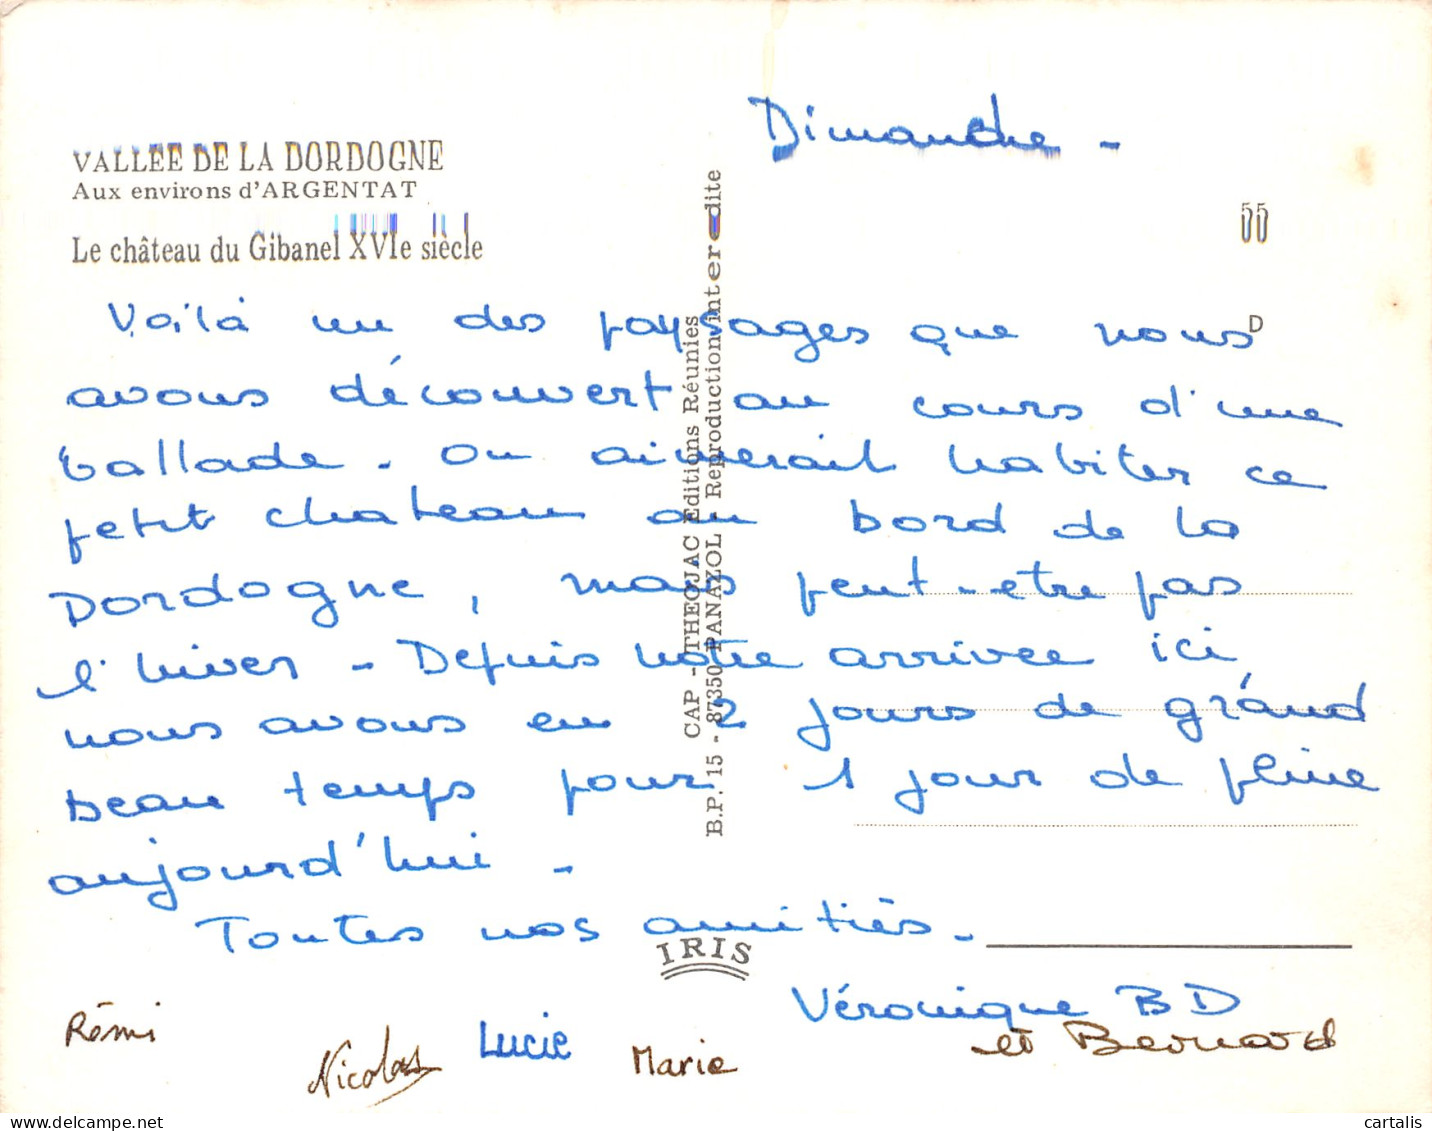 VALLEE DE LA DORDOGNE
Aux environs d'ARGENTAT
Le château du Gibanel XVIe siècle
Dimanche -
55
D
Voilà un des paysages que nous
avons découvert au cours d'une
ballade. On aimerait habiter ce
petit chateau au bord de la
Dordogne, mais peut-etre pas
l'hiver - Depuis notre arrivée ici,
nous avons eu 2 jours de grand
beau temps pour 1 jour de pluie
aujourd'hui -
Toutes nos amitiés -
Véronique BD
et Bernard
Rémi
Nicolas
Lucie
Marie
CAP - THEOJAC Editions Réunies
B.P. 15 - 87350 PANAZOL - Reproduction interdite
IRIS
cartalis